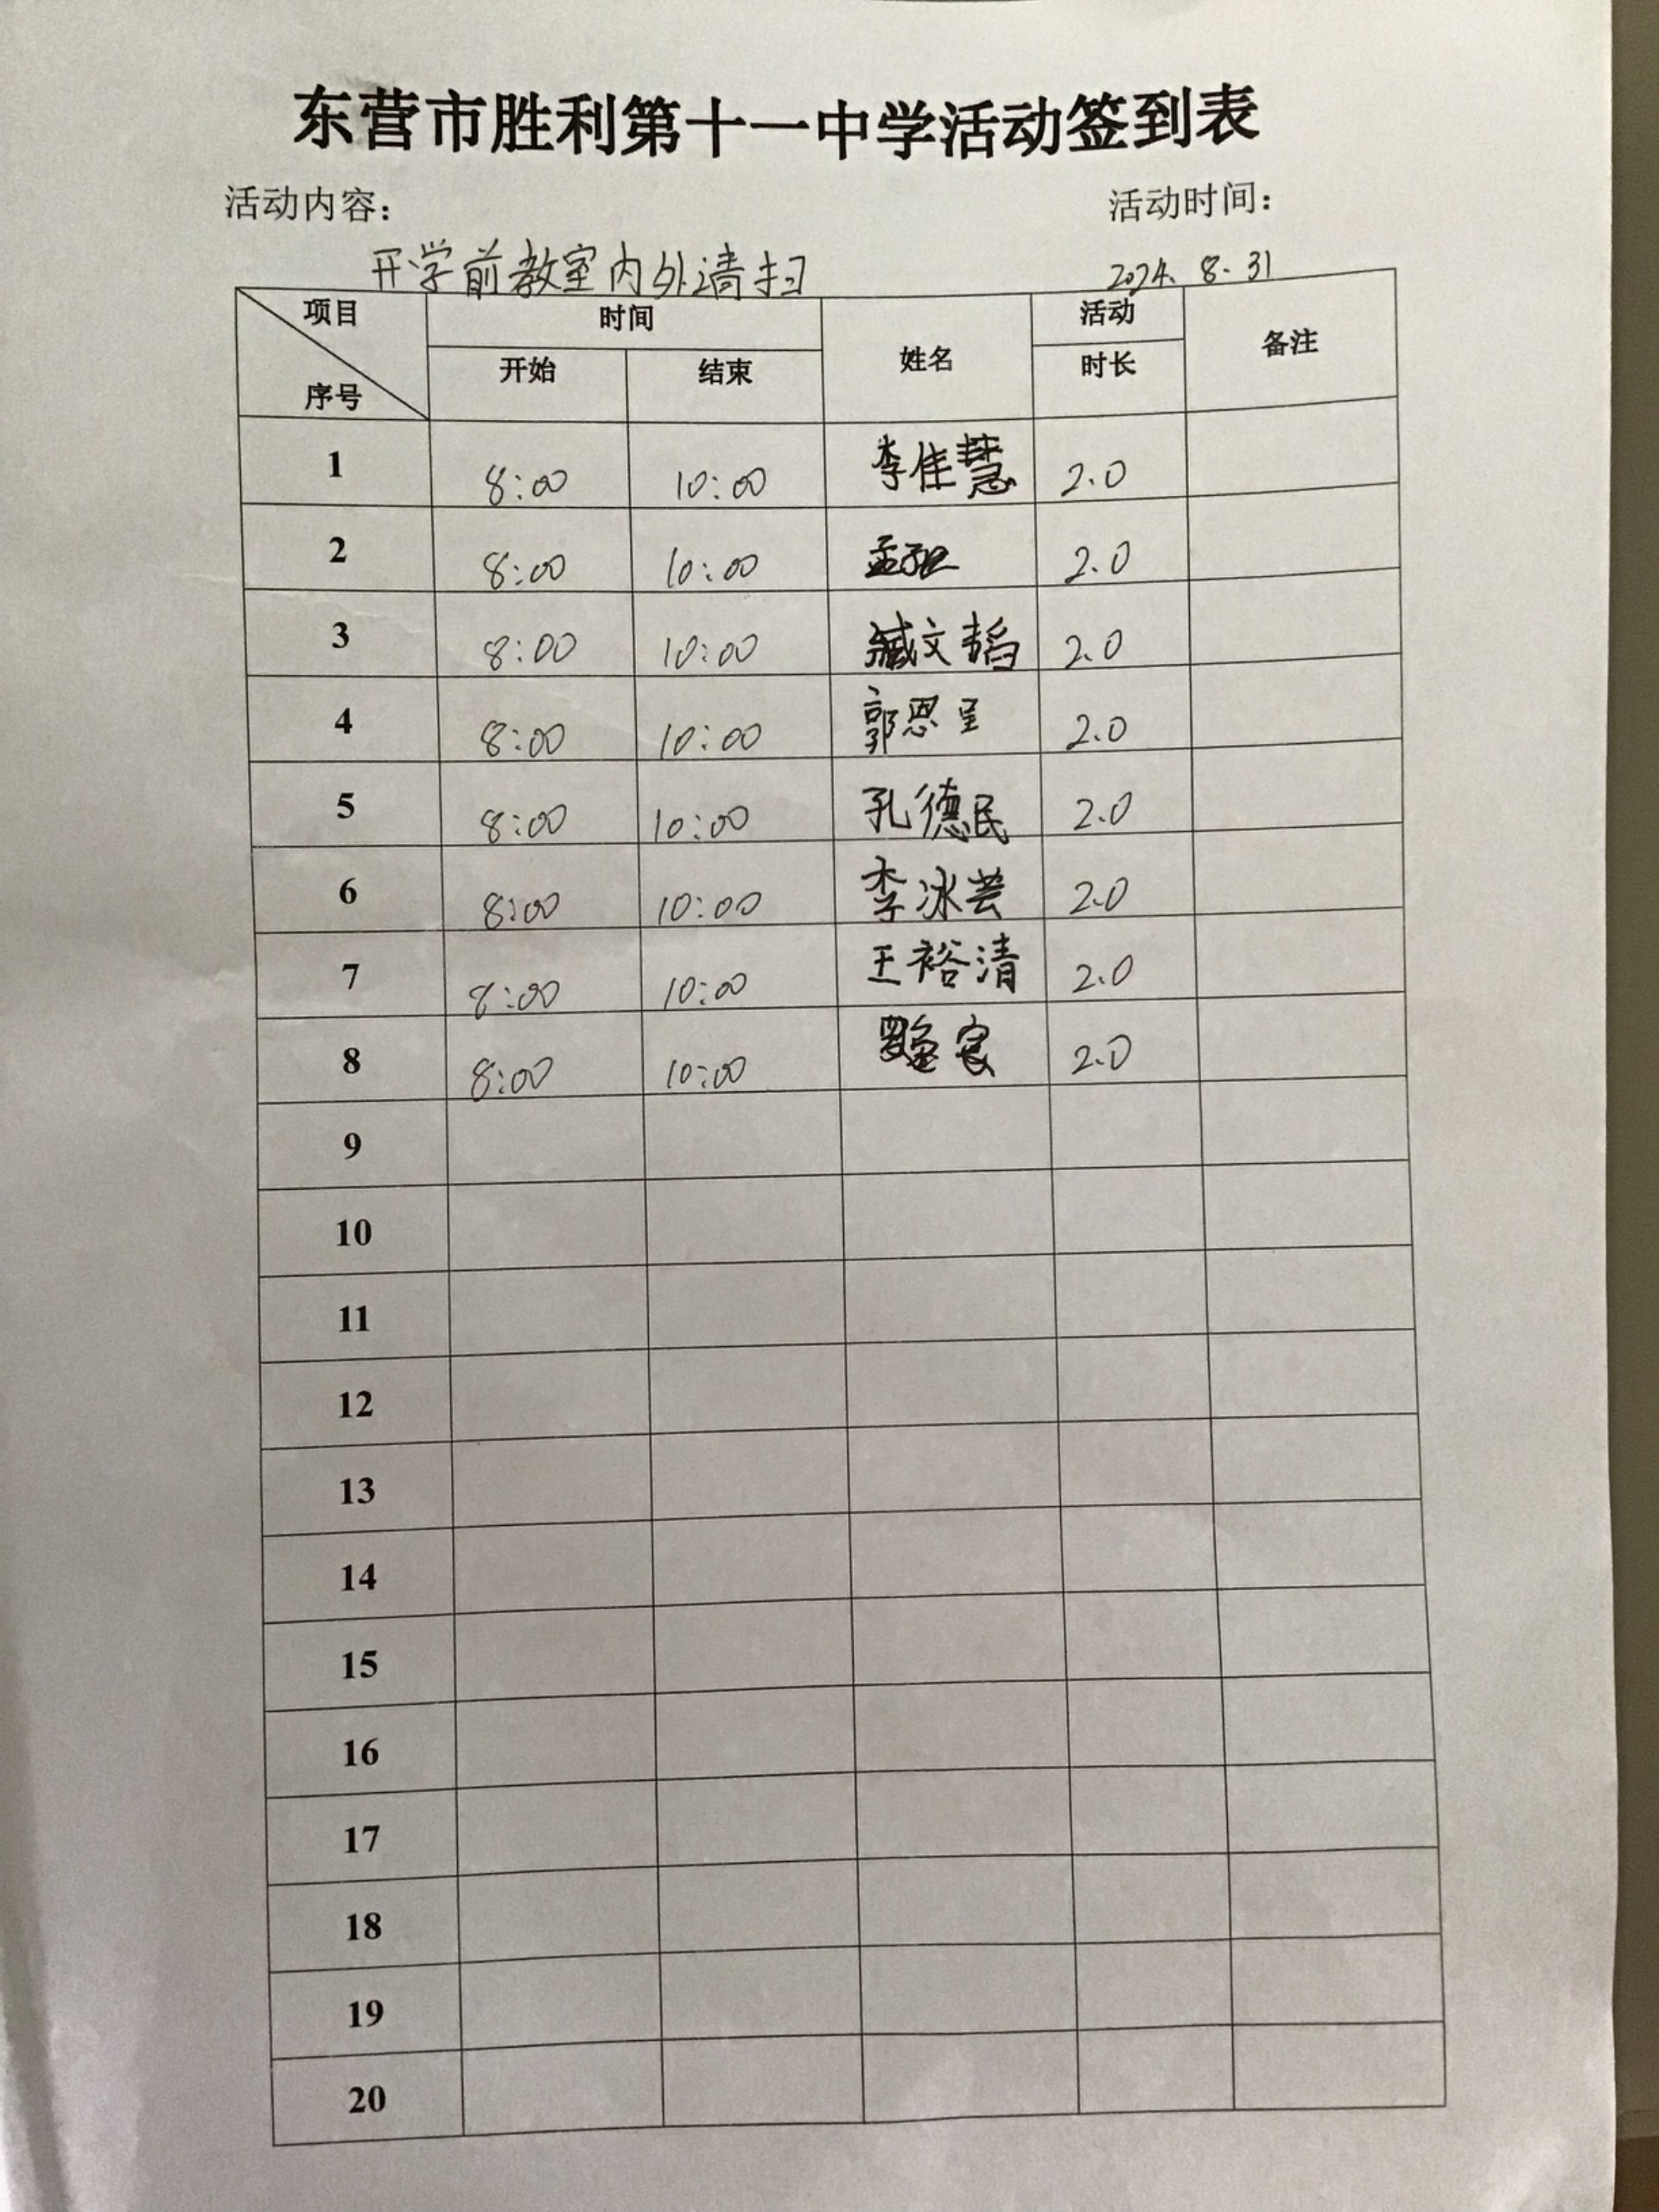 东营市胜利第十一中学活动签到表
活动内容： 活动时间：
开学前教室内外请扫 2024. 8. 31
项目 时间 姓名 活动 备注
序号 开始 结束 时长
1 8:00 10:00 李佳慧 2.0
2 8:00 10:00 2.0
3 8:00 10:00 臧文韬 2.0
4 8:00 10:00 郭恩呈 2.0
5 8:00 10:00 孔德民 2.0
6 8:00 10:00 李冰芸 2.0
7 8:00 10:00 王裕清 2.0
8 8:00 10:00 2.0
9
10
11
12
13
14
15
16
17
18
19
20